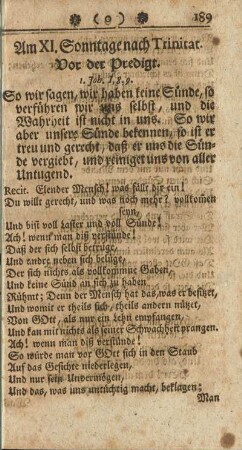 ( o ) 189
Am XI. Sonntage nach Trinitat.
Vor der Predigt.
1. Joh. I, 8. 9.
So wir sagen, wir haben keine Sünde, so
verführen wir uns selbst, und die
Wahrheit ist nicht in uns. So wir
aber unsere Sünde bekennen, so ist er
treu und gerecht, daß er uns die Sün-
de vergiebt, und reiniget uns von aller
Untugend.
Recit. Elender Mensch! was fällt dir ein!
Du willt gerecht, und was noch mehr? vollkommen
seyn,
Und bist voll Laster und voll Sünde!
Ach! wenn man diß verstünde!
Daß der sich selbst betrüge,
Und andre neben sich belüge,
Der sich nichts als vollkommne Gaben,
Und keine Sünd an sich zu haben
Rühmt; Denn der Mensch hat das, was er besitzet,
Und womit er theils sich, theils andern nützet,
Von GOtt, als nur ein Lehn empfangen,
Und kan mit nichts als seiner Schwachheit prangen.
Ach! wenn man diß verstünde!
So würde man vor GOtt sich in den Staub
Auf das Gesichte niederlegen,
Und nur sein Unvermögen,
Und das, was uns untüchtig macht, beklagen;
Man